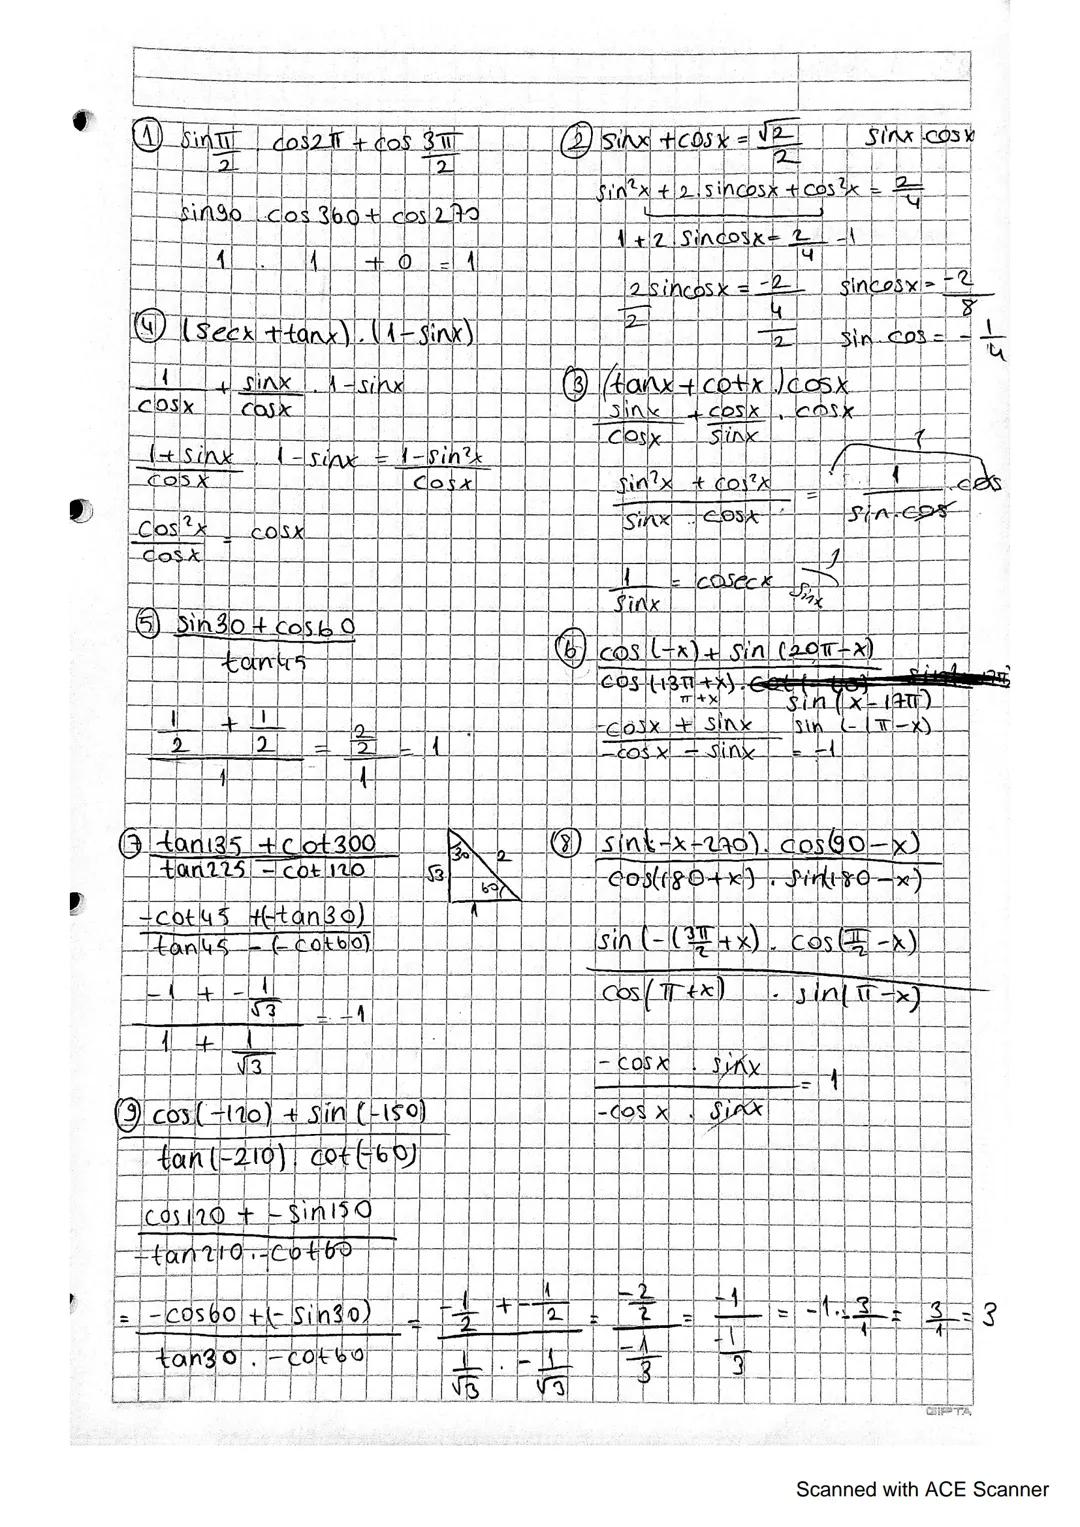 ① sin π/2 . cos2π + cos 3π/2
sin90 . cos360 + cos270
1 . 1 + 0 = 1
② sinx + cosx = √2/2 sinx.cosx
sin²x + 2.sincosx + cos²x = 2/4
1 + 2 sincosx = 2/4 - 1
2sincosx/2 = -2/4/2 sincosx = -2/8
sin.cos = -1/4
④ (secx + tanx).(1-sinx)
1/cosx + sinx/cosx . 1-sinx
1+sinx/cosx . 1-sinx = 1-sin²x/cosx
cos²x/cosx = cosx
③ (tanx + cotx).cosx
sinx/cosx + cosx/sinx . cosx
sin²x + cos²x/sinx . cosx = 1/sin.cos . cos
1/sinx = cosecx 1/sinx
⑤ sin30 + cos60/tan45
1/2 + 1/2/1 = 2/2/1 = 1
⑥ cos(-x) + sin(20π-x)/cos(13π+x). sin(x-17π)
π+x
-cosx + sinx/-cosx - sinx sin(-(π-x) = -1
⑦ tan135 + cot300/tan225 - cot120
30 2 √3 60 1
-cot45 + (-tan30)/tan45 - (-cot60)
-1 + -1/√3/1 + 1/√3 = -1
⑧ sin(-x-270). cos(90-x)/cos(180+x). sin(180-x)
sin(-(3π/2+x). cos(π/2-x)/cos(π+x) . sin(π-x)
-cosx . sinx/-cosx . sinx = 1
⑨ cos(-120) + sin(-150)/tan(-210). cot(-60)
cos120 + -sin150/-tan210.-cot60
= -cos60 + (-sin30)/tan30 . -cot60 = -1/2 + -1/2/1/√3 . -1/√3 = -2/2/-1/3 = -1/-1/3 = -1.-3/1 = 3/1 = 3
GIPTA
Scanned with ACE Scanner